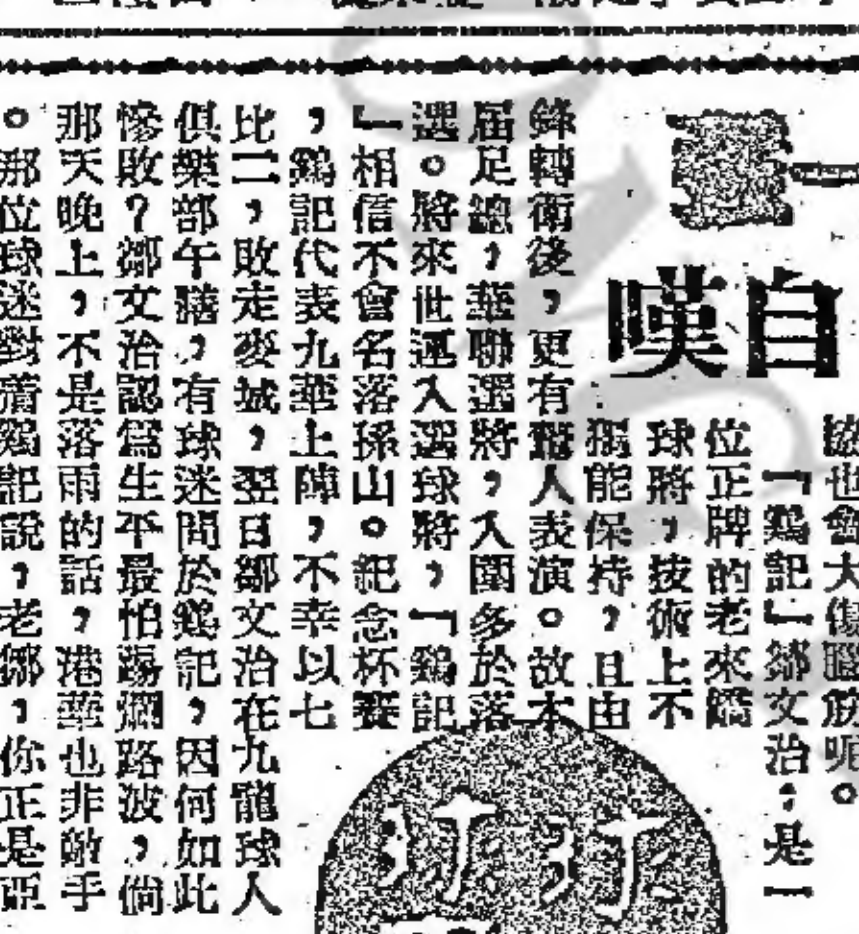 一
自嘆
協也會大傷腦筋呢。
「鷄記」鄒文治,是一
位正牌的老來嬌
球將,技術上不
獨能保持,且由
鋒轉衛後,更有驚人表演。故本
屆足總,華聯選將,入圍多於落
選。將來世運入選球將,「鷄記
」相信不會名落孫山。紀念杯賽
,鷄記代表九華上陣,不幸以七
比二,敗走麥城,翌日鄒文治在九龍球人
俱樂部午膳,有球迷問於鷄記,因何如此
慘敗?鄒文治認爲生平最怕踢爛路波,倘
那天晚上,不是落雨的話,港華也非敵手
。那位球迷對着鷄記說,老鄒,你正是